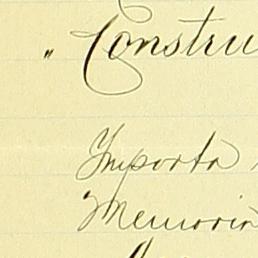 " Constru
Importa
Memoria